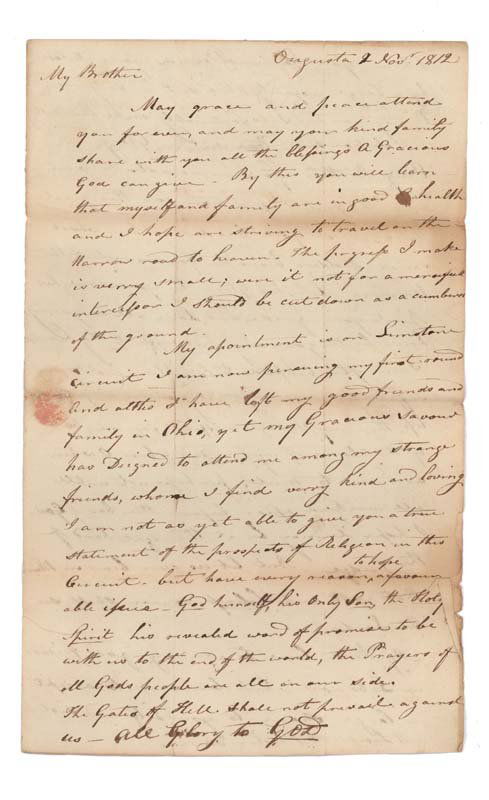 Augusta 2 Novr. 1812
My Brother
May grace and peace attend
you for ever, and may your kind family
share with you all the blessings A Gracious
God can give - By this you will learn
that myself and family are in good health
and I hope are striving to travel on the
Narrow road to heaven. The progress I make
is verry small; were it not for a merciful
intercessor I should be cut down as a cumberer
of the ground.
My apointment is on Limstone
Circuit I am now persuing my first round
and altho I have left my good friends and
family in Ohio, yet my Gracious Saviour
has Deigned to attend me among my strange
friends, whome I find verry kind and loving
I am not as yet able to give you a true
statement of the prospects of Religion in this
Circuit - but have every reason to hope a favour
able issue - God himself, his Only Son, the Holy
Spirit his revealed word of promise to be
with us to the end of the world, the Prayers of
all Gods people are all on our side.
The Gates of Hell shall not prevail against
us - All Glory to GOD